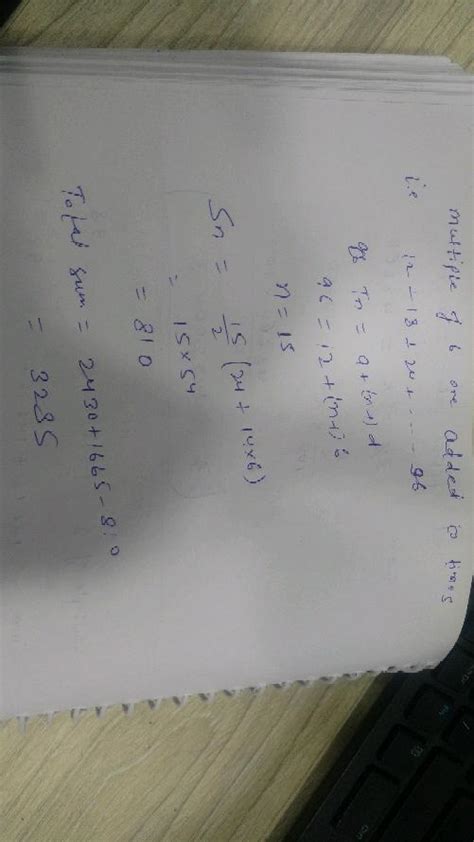 multiple of 6 are added 2 times
i.e 12 + 18 + 24 + ---- 96
96 Tn = a + (n-1) d
96 = 12 + (n-1) 6
n = 15
Sn = 15/2 (24 + 14 × 6)
= 15 × 54
= 810
Total sum = 2430 + 1665 - 810
= 3285